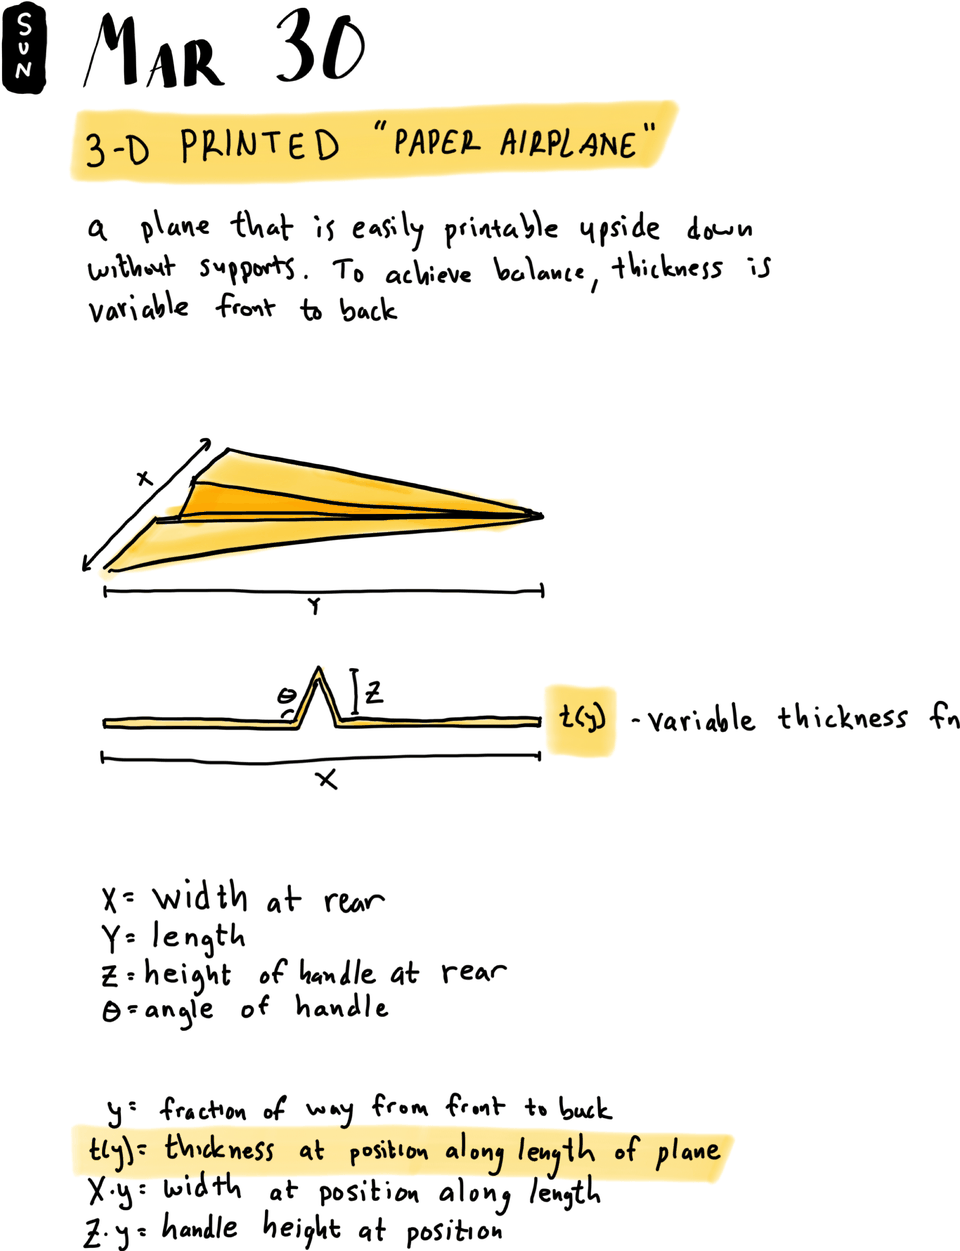 SUN
MAR 30
3-D PRINTED "PAPER AIRPLANE"
a plane that is easily printable upside down
without supports. To achieve balance, thickness is
variable front to back
X
Y
θ
Z
t(y) - variable thickness fn
X
X= width at rear
Y= length
Z= height of handle at rear
θ= angle of handle
y= fraction of way from front to back
t(y)= thickness at position along length of plane
X·y= width at position along length
Z·y= handle height at position